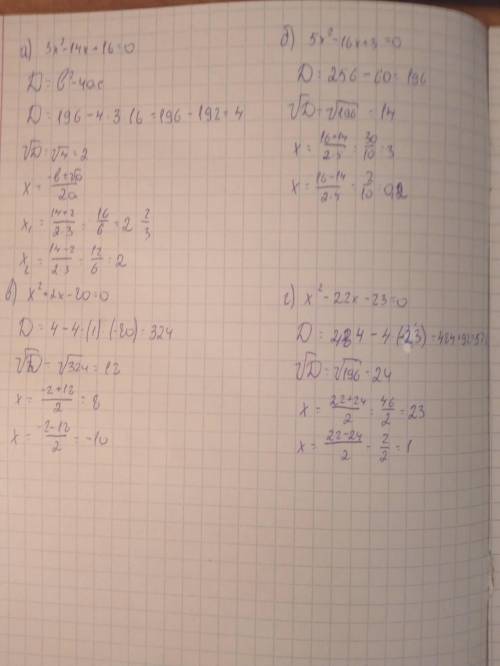 а) 3x²-14x+16=0
D=b²-4ac
D=196-4·3·16=196-192=4
√D=√4=2
x=(-b±√D)/2a
x₁=(14+2)/(2·3)=16/6=2 2/3
x₂=(14-2)/(2·3)=12/6=2
б) 5x²-16x+3=0
D=256-60=196
√D=√196=14
x=(16+14)/(2·5)=30/10=3
x=(16-14)/(2·5)=2/10=0,2
в) x²+2x-80=0
D=4-4·(1)·(-80)=324
√D=√324=18
x=(-2+18)/2=8
x=(-2-18)/2=-10
г) x²-22x-23=0
D=484-4·(-23)=484+92=576
√D=√196=24
x=(22+24)/2=46/2=23
x=(22-24)/2=-2/2=1